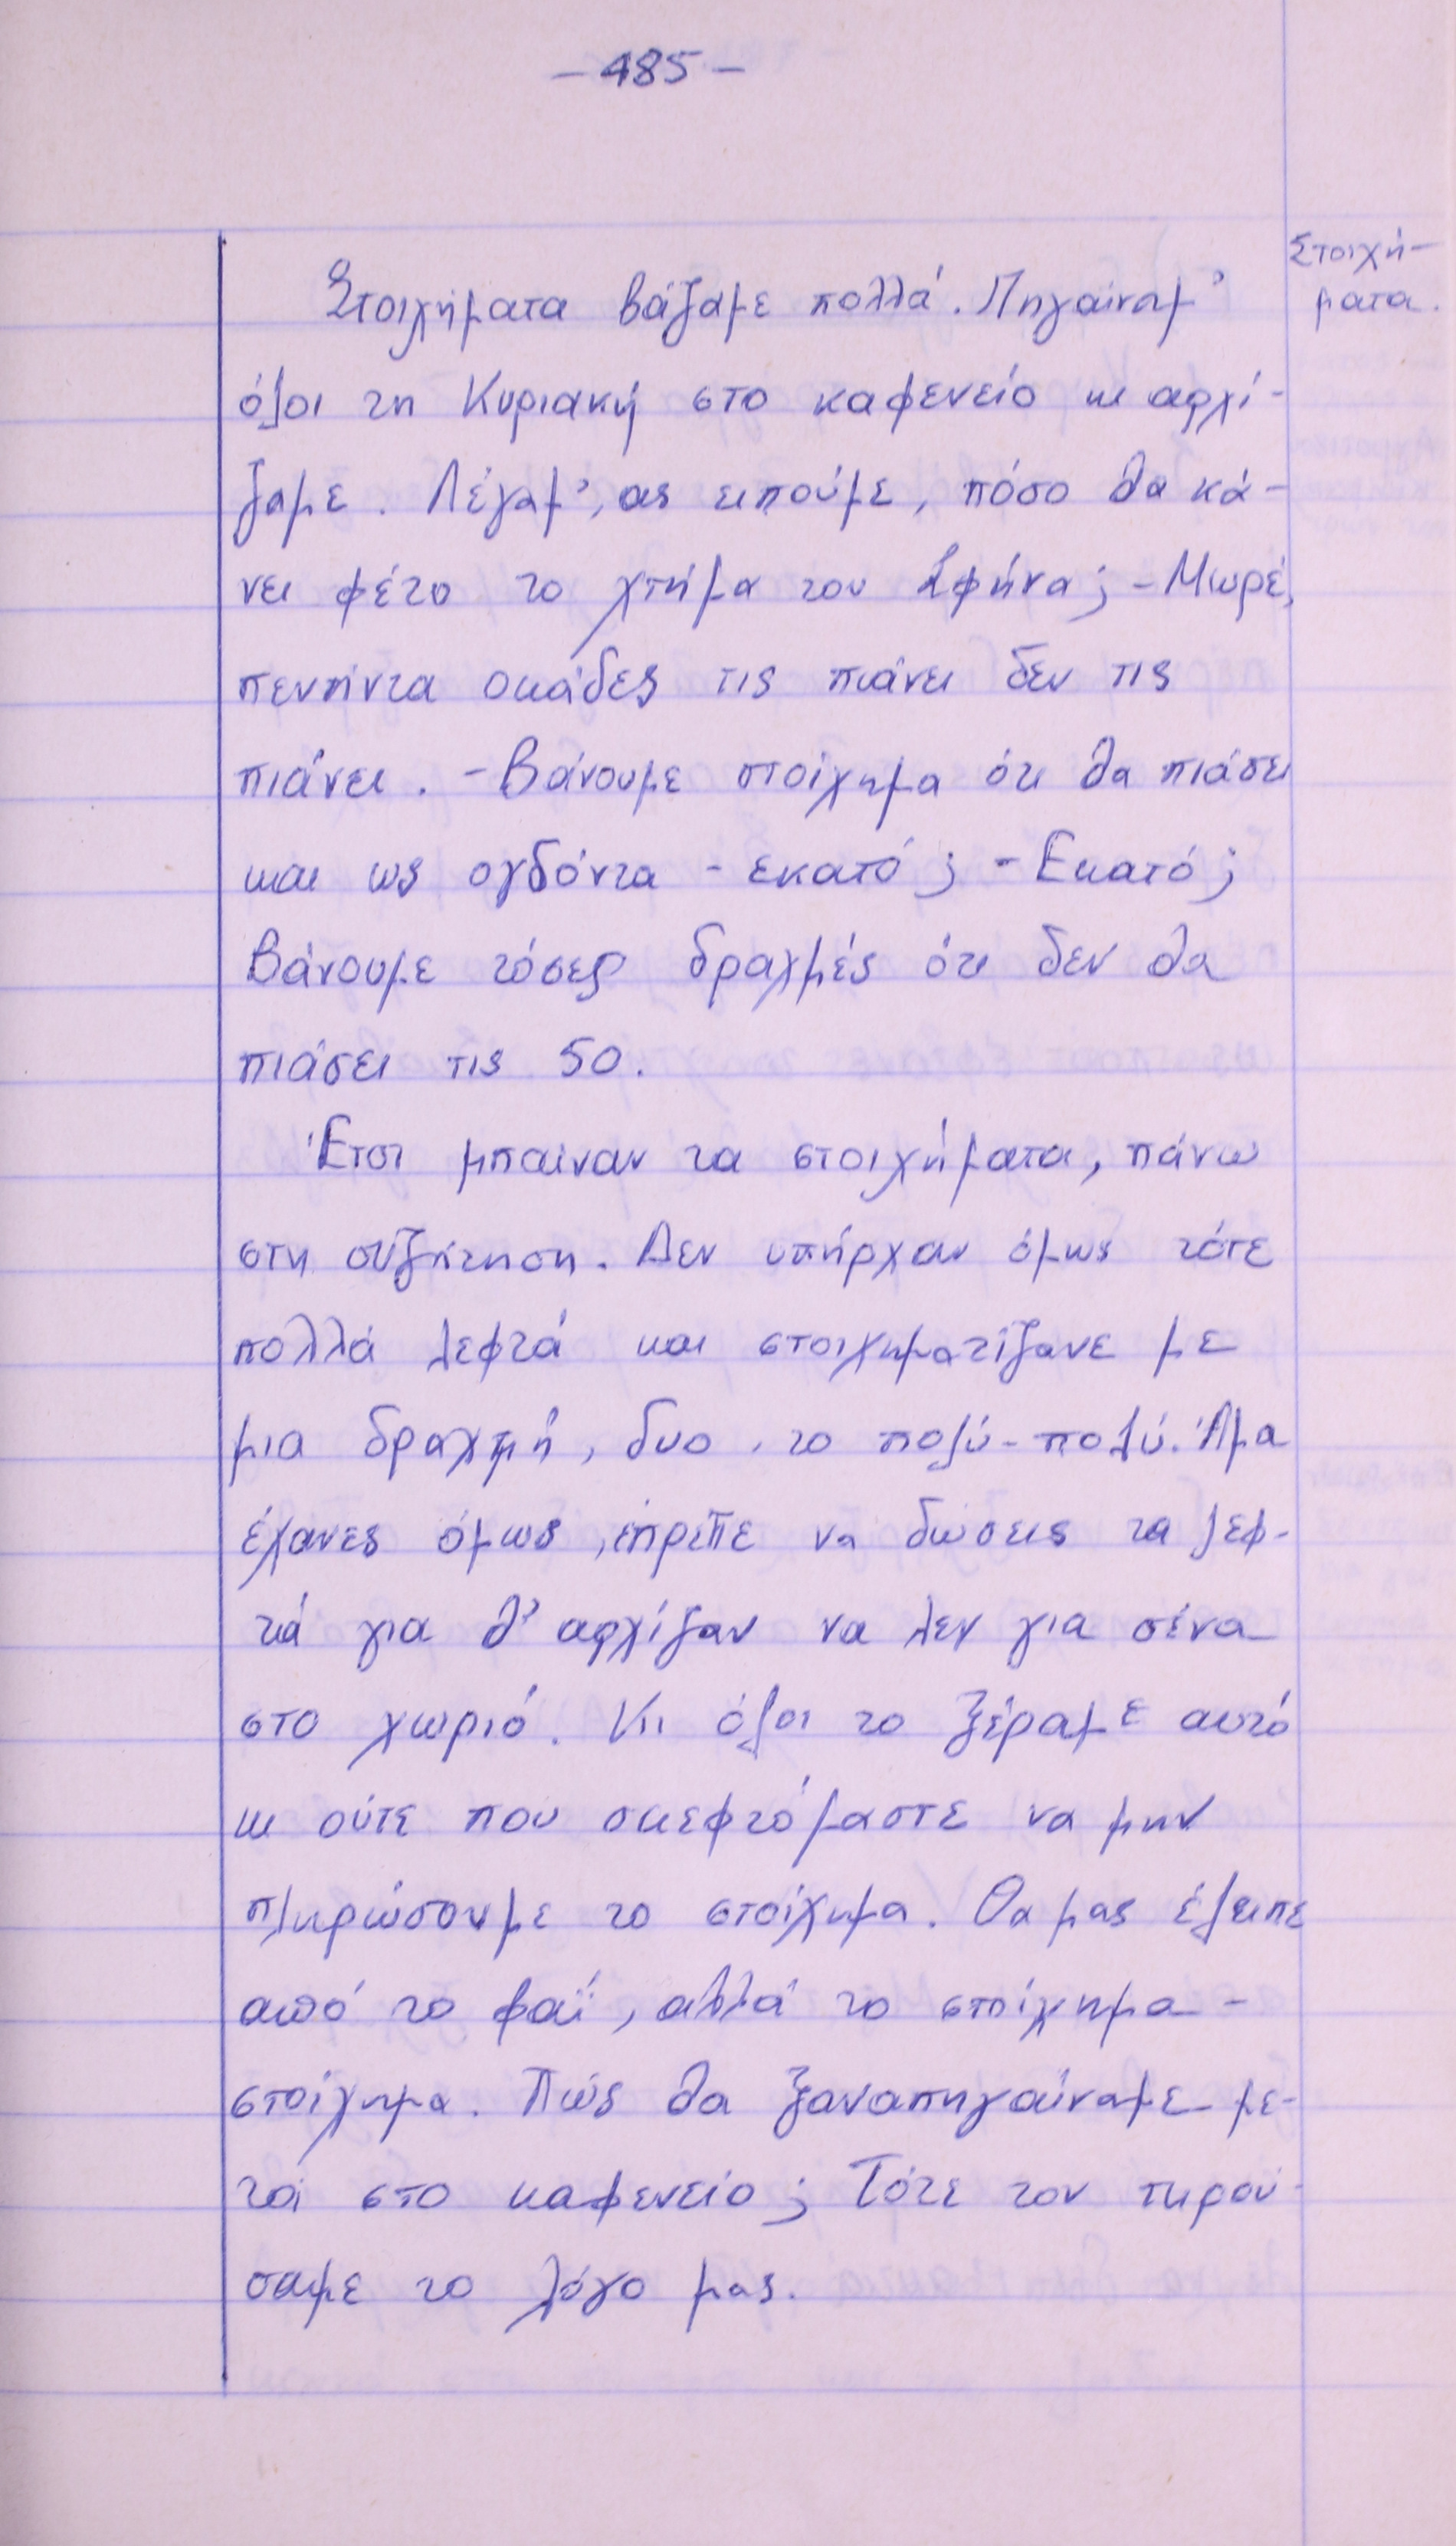 - 485 -
Στοιχή-
ματα.
Στοιχήματα βάζαμε πολλά. Πηγαίναμ'
όλοι τη Κυριακή στο καφενείο κι αρχί-
ζαμε. Λέγαμ', ας ειπούμε, πόσο θα κά-
νει φέτο το χτήμα του Σφήνα; - Μωρέ,
πενήντα οκάδες τις πιάνει δεν τις
πιάνει. - Βάνουμε στοίχημα ότι θα πιάσει
και ως ογδόντα - εκατό; - Εκατό;
Βάνουμε τόσες δραχμές ότι δεν θα
πιάσει τις 50.
Έτσι μπαίναν τα στοιχήματα, πάνω
στη συζήτηση. Δεν υπήρχαν όμως τότε
πολλά λεφτά και στοιχηματίζανε με
μια δραχμή, δυο, το πολύ-πολύ. Άμα
έχανες όμως, έπρεπε να δώσεις τα λεφ-
τά για θ' αρχίζαν να λεν για σένα
στο χωριό. Κι όλοι το ξέραμε αυτό
κι ούτε που σκεφτόμαστε να μην
πληρώσουμε το στοίχημα. Θα μας έλειπε
από το φαΐ, αλλά το στοίχημα -
στοίχημα. Πώς θα ξαναπηγαίναμε με-
τά στο καφενείο; Τότε τον τηρού-
σαμε το λόγο μας.